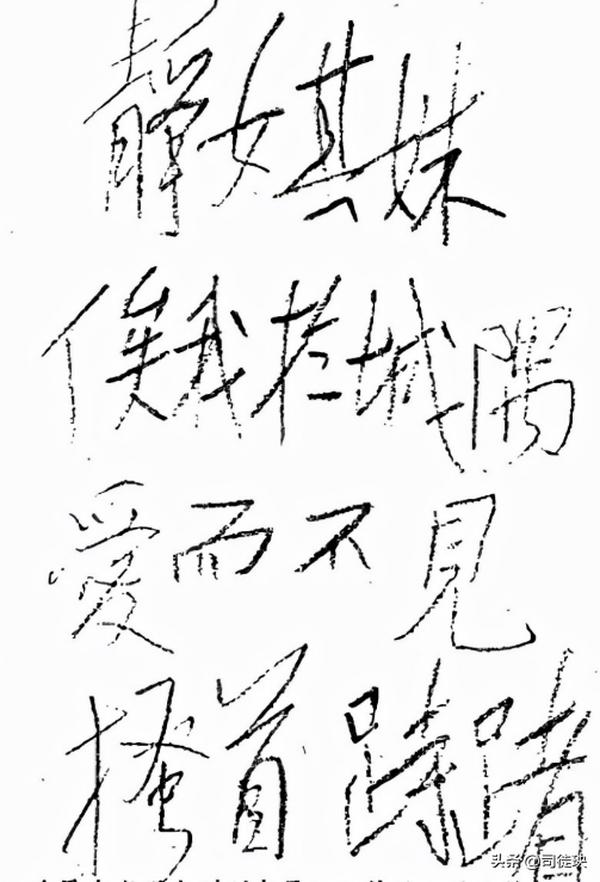 靜女其姝
俟我於城隅
愛而不見
搔首
头条@司徒玦